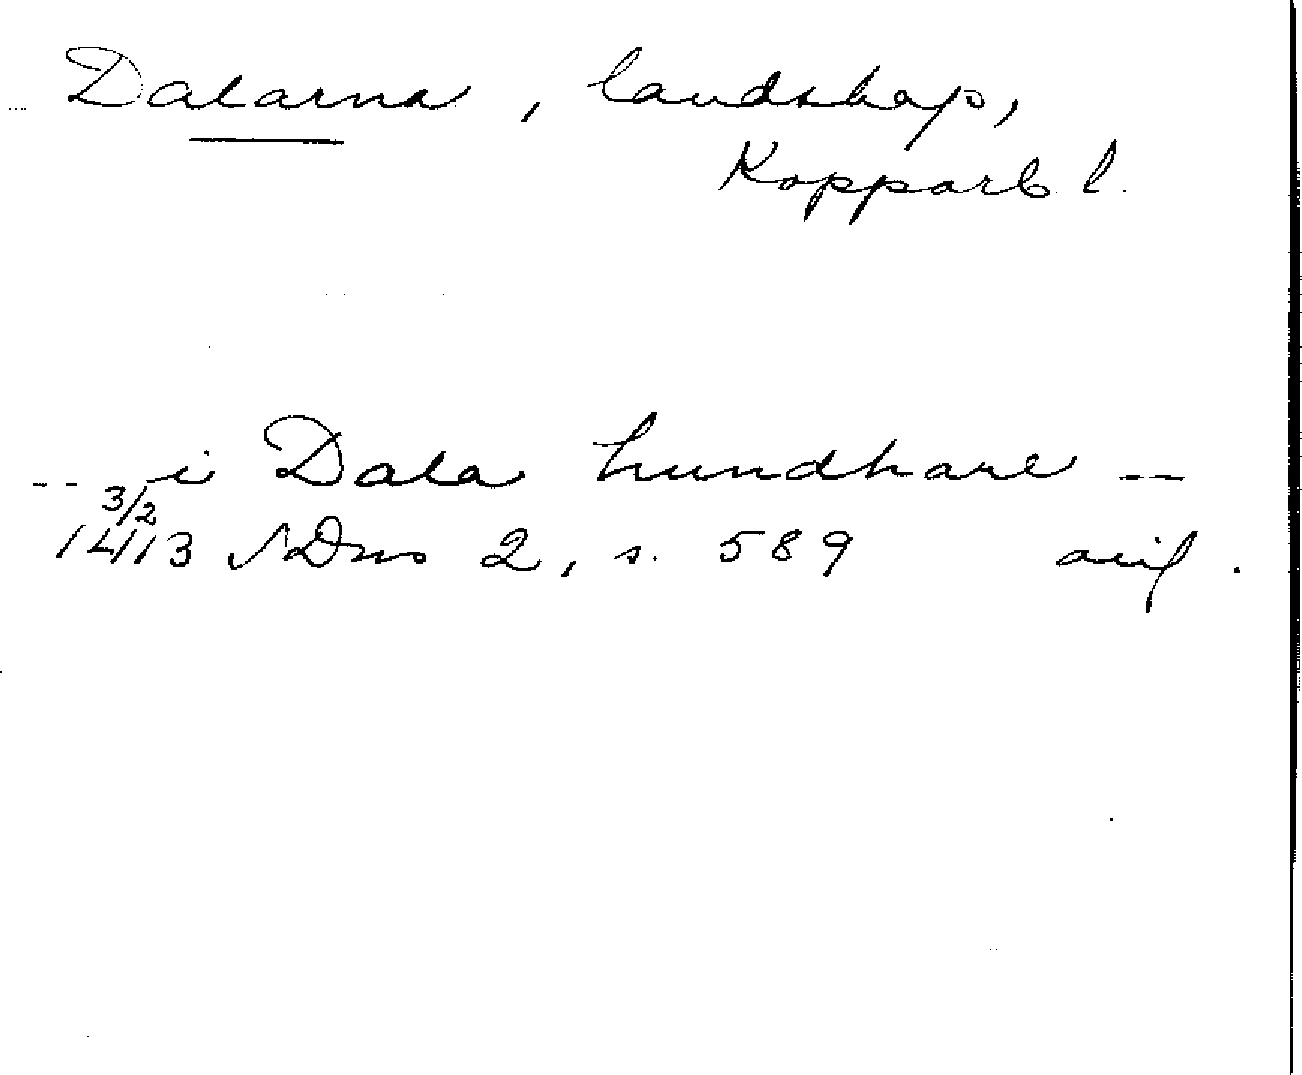 Dalarna, landskap,
Kopparb l.
-- i Dala hundhare --
3/2
1413 SDns 2, s. 589 avskr.